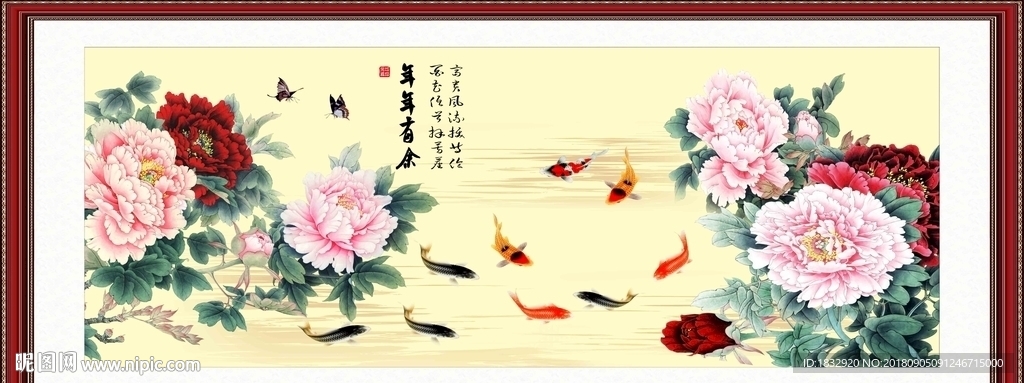 年年有余
富贵风流拔等伦
百花低首拜芳尘
昵图网 www.nipic.com
ID:1832920 NO:20180905091246715000